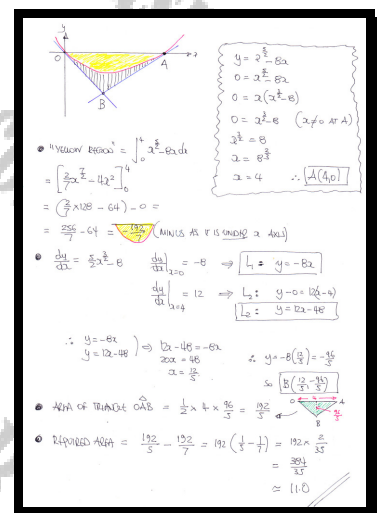 y
O
A
x
B
y = x^{5/2} - 8x
0 = x^{5/2} - 8x
0 = x(x^{3/2} - 8)
0 = x^{3/2} - 8 (x ≠ 0 AT A)
x^{3/2} = 8
x = 8^{2/3}
x = 4 ∴ A(4,0)
"YELLOW REGION" = ∫_0^4 x^{5/2} - 8x dx
= [2/7 x^{7/2} - 4x^2]_0^4
= (2/7 × 128 - 64) - 0 =
= 256/7 - 64 = -192/7 (MINUS AS IT IS UNDER x AXIS)
dy/dx = 5/2 x^{3/2} - 8 dy/dx|_{x=0} = -8 ⇒ L_1: y = -8x
dy/dx|_{x=4} = 12 ⇒ L_2: y - 0 = 12(x-4)
L_2: y = 12x - 48
∴ y = -8x
y = 12x - 48 } ⇒ 12x - 48 = -8x
20x = 48
x = 12/5
∴ y = -8(12/5) = -96/5
So B(12/5, -96/5)
AREA OF TRIANGLE OAB = 1/2 × 4 × 96/5 = 192/5
O 4 A
96/5
B
REQUIRED AREA = 192/5 - 192/7 = 192(1/5 - 1/7) = 192 × 2/35
= 384/35
≈ 11.0